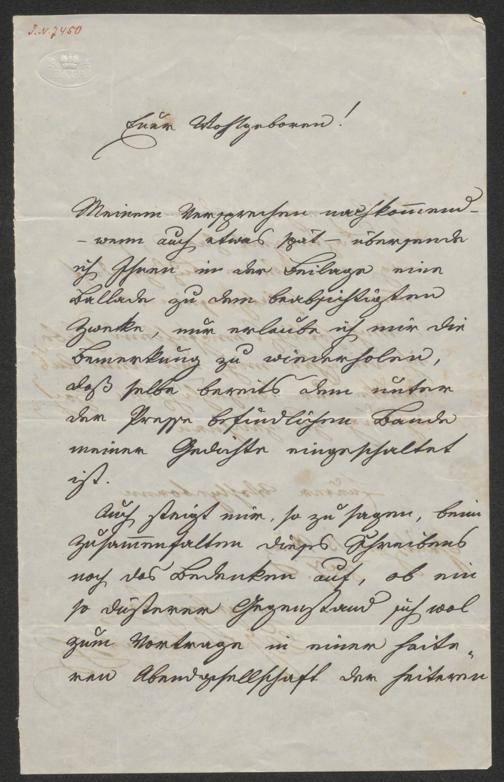 J.N. 7450
Euer Wohlgeboren!
Meinem Versprechen nachkom̅end –
– wenn auch etwas spät – übersende
ich Ihnen in der Beilage eine
Ballade zu dem beabsichtigten
Zwecke, nur erlaube ich mir die
Bemerkung zu wiederholen,
daß selbe bereits dem unter
der Presse befindlichen Bande
meiner Gedichte eingeschaltet
ist.
Auch steigt mir, so zu sagen, beim
Zusam̅enfalten dieses Schreibens
noch das Bedenken auf, ob ein
so düsterer Gegenstand sich wol
zum Vortrage in einer heite-
ren Abendgesellschaft der heiteren